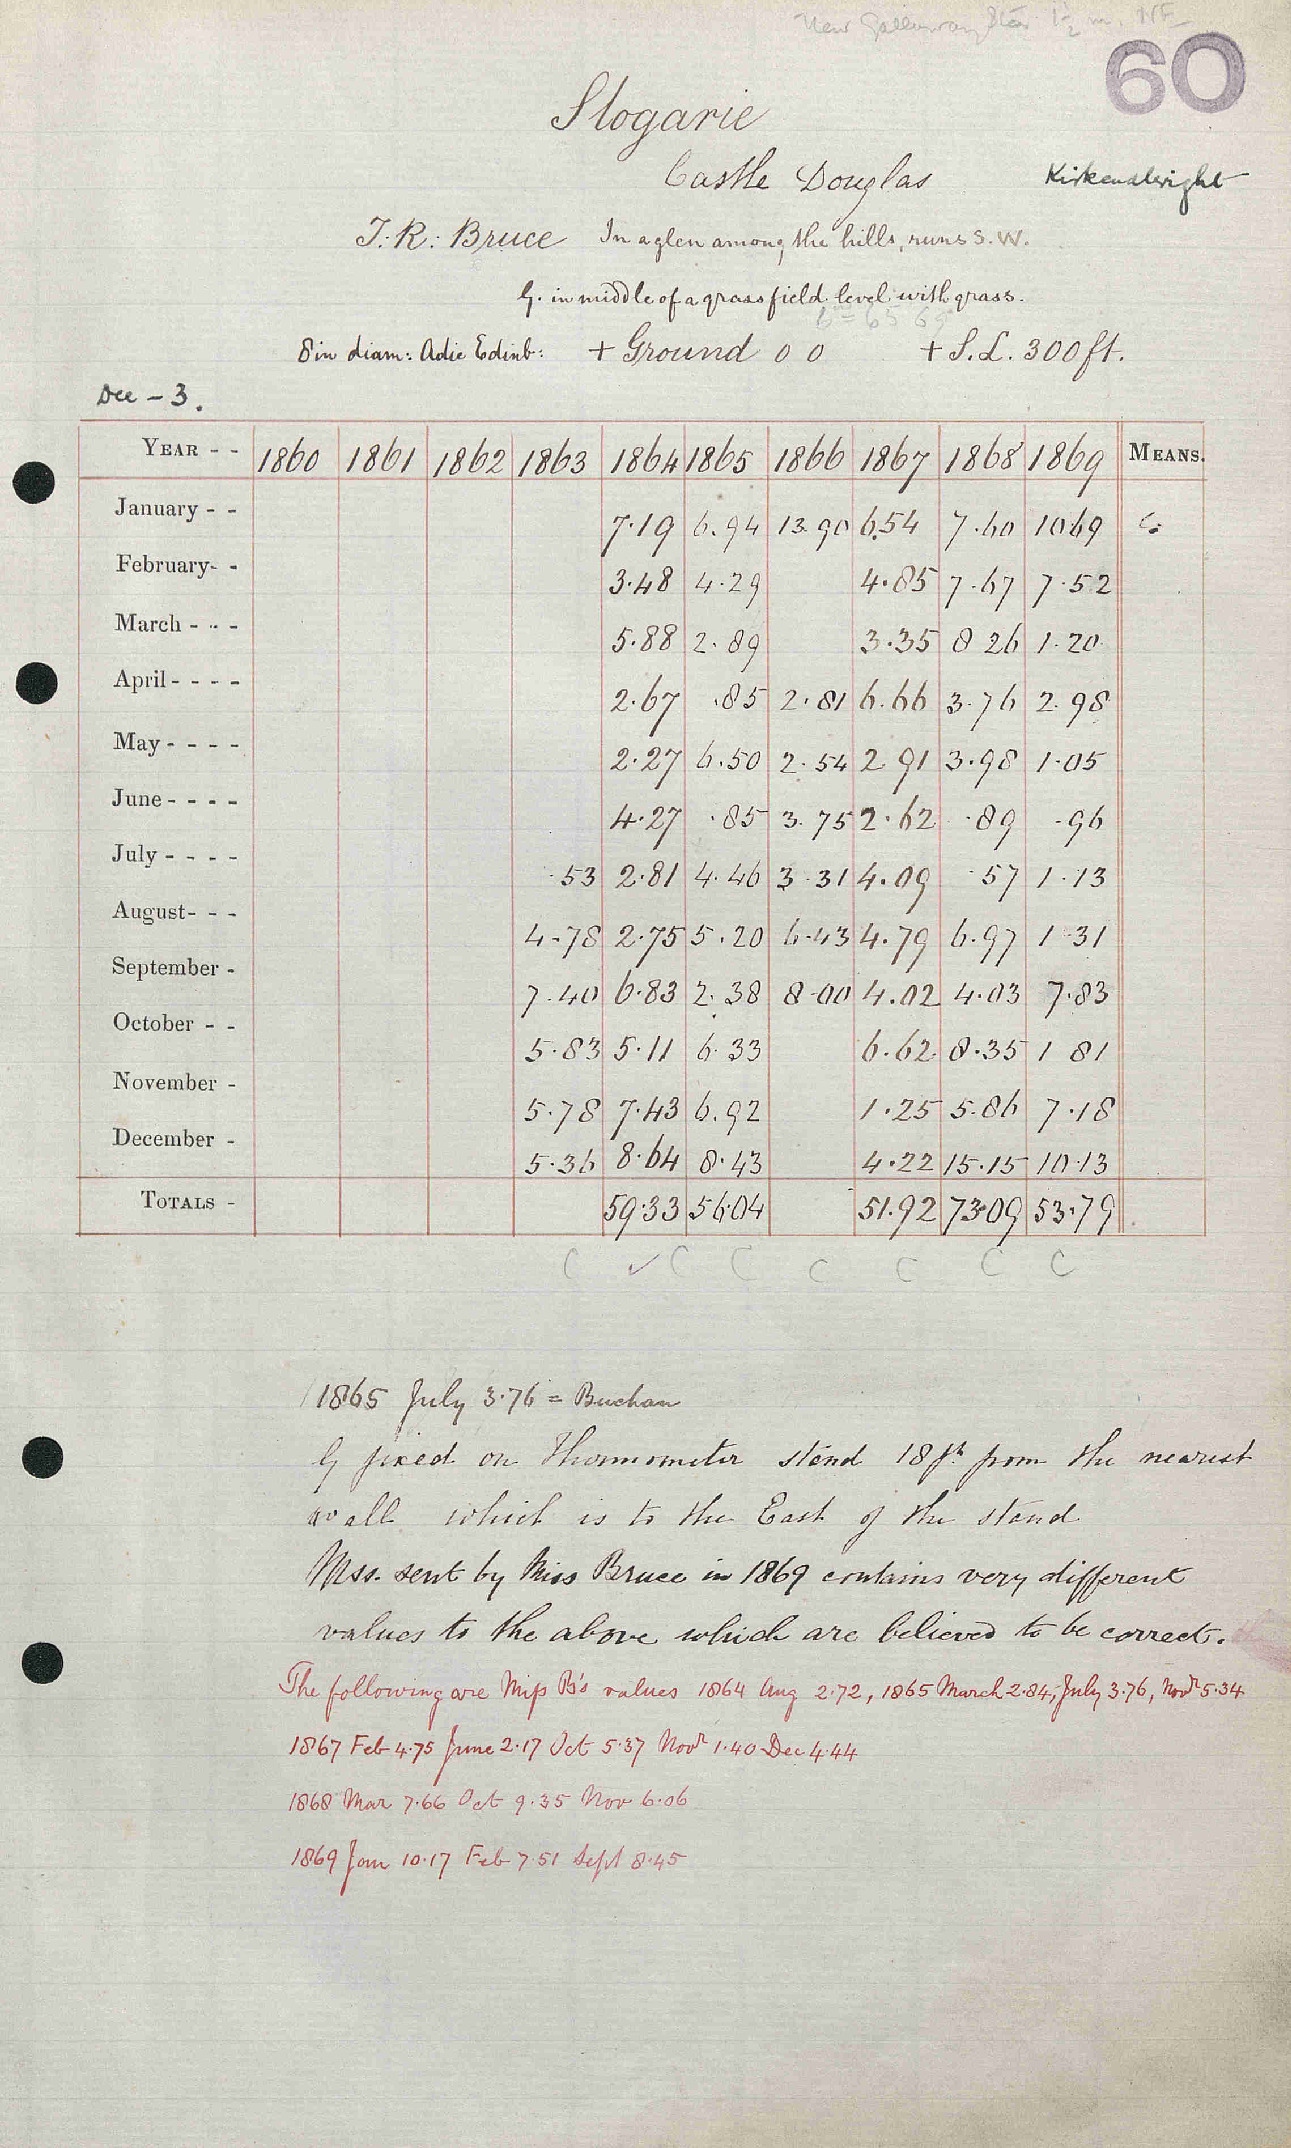 New Galloway Sta. 1½ m. NE
60
Slogarie
Castle Douglas Kirkcudbright
T. R. Bruce In a glen among the hills, runs S.W.
G. in middle of a grass field level with grass.
65 69
8 in diam: Adie Edinb: + Ground 0 0 + S.L. 300 ft.
Dee - 3.
YEAR - - 1860 1861 1862 1863 1864 1865 1866 1867 1868 1869 MEANS.
January - - 7.19 6.94 13.90 6.54 7.60 10 69
February- - 3.48 4.29 4.85 7.67 7.52
March - - - 5.88 2.89 3.35 8 26 1.20
April - - - - 2.67 .85 2.81 6.66 3.76 2.98
May - - - - 2.27 6.50 2.54 2 91 3.98 1.05
June - - - - 4.27 .85 3.75 2.62 .89 .96
July - - - - .53 2.81 4.46 3 31 4.09 .57 1.13
August- - - 4.78 2.75 5.20 6.43 4.79 6.97 1 31
September - 7.40 6.83 2.38 8.00 4.02 4.03 7.83
October - - 5.83 5.11 6.33 6.62 8.35 1 81
November - 5.78 7.43 6.92 1.25 5.86 7.18
December - 5.36 8.64 8.43 4.22 15.15 10.13
TOTALS - 59.33 56.04 51.92 73.09 53.79
C ✓ C C C C C C
1865 July 3.76 = Buchan
G fixed on Thermometer stand 18 ft from the nearest
wall which is to the East of the stand
Mss. sent by Miss Bruce in 1869 contains very different
values to the above which are believed to be correct.
The following are Miss B's values 1864 Aug 2.72, 1865 March 2.84, July 3.76, Novr 5.34
1867 Feb 4.75 June 2.17 Oct 5.37 Novr 1.40 Dec 4.44
1868 Mar 7.66 Oct 9.35 Nov 6.06
1869 Jan 10.17 Feb 7.51 Sept 8.45